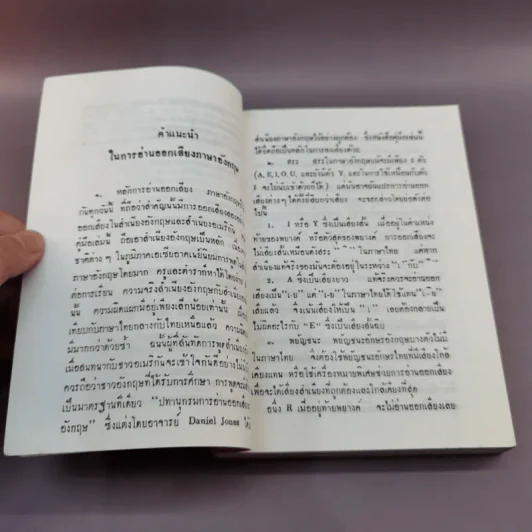 คำแนะนำ
ในการอ่านออกเสียงภาษาอังกฤษ
หลักการอ่านออกเสียง ภาษาอังกฤษ
กันทุกวันนี้ ที่ถือว่าสำคัญนั้นมีการออกเสียง
ออกเสียงในสำเนียงอังกฤษและสำเนียงอเมริกัน
คู่มือเล่มนี้ ถือเอาสำเนียงอังกฤษเป็นหลัก
ชาติต่าง ๆ ในภูมิภาคเอเซียอาคเนย์นิยม
ภาษาอังกฤษโดยมาก ครูและตำราก็หาได้โดยง่าย
ต่อการเรียน ความจริงสำเนียงอังกฤษกับสำเนียง
นั้น ความผิดแผกก็มีอยู่เพียงเล็กน้อยเท่านั้น
เทียบกับภาษาไทยกลางกับไทยเหนือแล้ว ความ
มีมากกว่าด้วยซ้ำ ฉนั้นผู้ที่สันทัดการพูดสำเนียง
เมื่อสนทนากับชาวอเมริกันจะเข้าใจกันดีอย่างไม่
ควรถือว่าชาวอังกฤษที่ได้รับการศึกษา การพูดจะ
เป็นมาตรฐานที่เดียว "ปทานุกรมการอ่านออกเสียง
อังกฤษ" ซึ่งแต่งโดยอาจารย์ Daniel Jones ได้
สำเนียงภาษาอังกฤษไว้อย่างถูกต้อง ซึ่งหนังสือคู่มือเล่มนี้
ได้ยึดถือเป็นหลักในการลงเสียงด้วย
๑. สระ สระในภาษาอังกฤษแม้จะมีเพียง ๕ ตัว
(A, E, I, O, U, และยังมีตัว Y, และการใช้เหมือนกับตัว
I จะไม่นับเข้าด้วยก็ได้) แต่นั่นอาจผันแปรการออก
เสียงต่าง ๆ ได้ดังที่มีสระกว่าเสียง จะยกกล่าวโดยย่อดังต่อ
ไปนี้
1. I หรือ Y ซึ่งเป็นเสียงสั้น เมื่ออยู่ในตำแหน่ง
ท้ายของพยางค์ หรือตัวสุดของพยางค์ การออกเสียงจะ
2. A ซึ่งเป็นเสียงยาว แต่ปลายตรงควรจะอ่านออก
ไม่ผิดอะไรกับ "E" ซึ่งเป็นเสียงสั้นฉบ
๒. พยัญชนะ พยัญชนะอักษรอังกฤษบางตัวไม่มี
ในภาษาไทย จึงต้องใช้พยัญชนะอักษรไทยที่มีเสียงใกล้
เคียงแทน หรือใช้เครื่องหมายพิเศษช่วยการออกเสียง
เพื่อจะได้เสียงสำเนียงที่ถูกต้องและใกล้เคียงที่สุด
อนึ่ง R เมื่ออยู่ท้ายพยางค์ จะไม่อ่านออกเสียงเลย